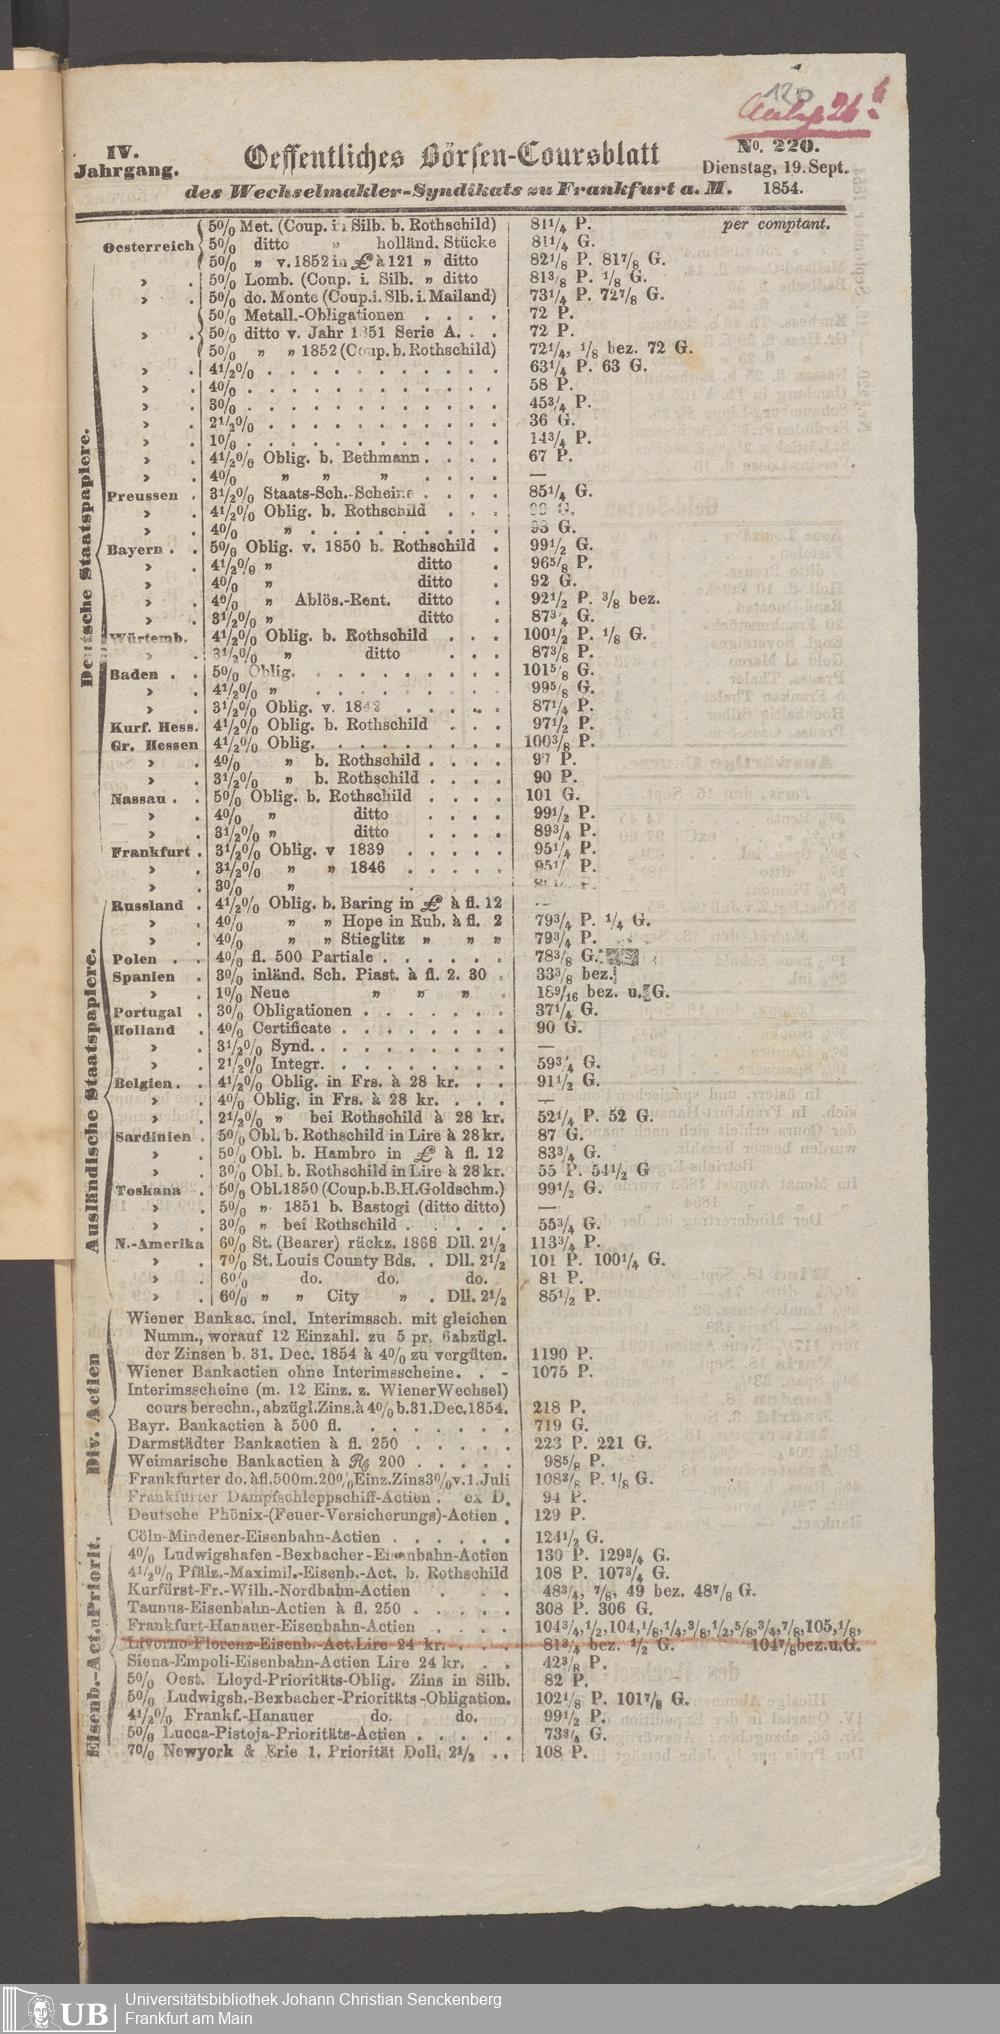 120
IV.
Jahrgang.
Oeffentliches Börsen-Coursblatt
des Wechselmakler-Syndikats zu Frankfurt a. M.
No. 220.
Dienstag, 19. Sept.
1854.
per comptant.
Deutsche Staatspapiere.
Oesterreich 5% Met. (Coup. i. Silb. b. Rothschild) 81¼ P.
5% ditto „ holländ. Stücke 81¼ G.
5% „ v. 1852 in £ à 121 „ ditto 82⅛ P. 81⅞ G.
› . 5% Lomb. (Coup. i. Silb. „ ditto 81⅜ P. ⅛ G.
› . 5% do. Monte (Coup. i. Slb. i. Mailand) 73¼ P. 72⅞ G.
5% Metall.-Obligationen . . . . 72 P.
› . 5% ditto v. Jahr 1851 Serie A. . . 72 P.
5% „ „ 1852 (Coup. b. Rothschild) 72¼, ⅛ bez. 72 G.
› . 4½% . . . . . . . . . . . 63¼ P. 63 G.
› . 4% . . . . . . . . . . . 58 P.
› . 3% . . . . . . . . . . . 45¾ P.
› . 2½% . . . . . . . . . . . 36 G.
› . 1% . . . . . . . . . . . 14¾ P.
› . 4½% Oblig. b. Bethmann . . . . 67 P.
› . 4% „ „ „ . . . . —
Preussen . 3½% Staats-Sch.-Scheine . . . . 85¼ G.
› . 4½% Oblig. b. Rothschild . . . G.
› . 4% „ . . . . . . . . 93 G.
Bayern . . 5% Oblig. v. 1850 b. Rothschild . 99½ G.
› . 4½% „ ditto . 96⅝ P.
› . 4% „ ditto . 92 G.
› . 4% „ Ablös.-Rent. ditto . 92½ P. ⅜ bez.
› . 3½% „ ditto . 87¾ G.
Würtemb. 4½% Oblig. b. Rothschild . . . 100½ P. ⅛ G.
› . 3½% „ ditto . . . 87⅜ P.
Baden . . 5% Oblig. . . . . . . . . . 101⅝ G.
› . 4½% „ . . . . . . . . . 99⅝ G.
› . 3½% Oblig. v. 1842 . . . . . 87¼ P.
Kurf. Hess. 4½% Oblig. b. Rothschild . . . 97½ P.
Gr. Hessen 4½% Oblig. . . . . . . . . 100⅜ P.
› . 4% „ b. Rothschild . . . . 97 P.
› . 3½% „ b. Rothschild . . . . 90 P.
Nassau . . 5% Oblig. b. Rothschild . . . . 101 G.
› . 4% „ ditto . . . . 99½ P.
› . 3½% „ ditto . . . . 89¾ P.
Frankfurt . 3½% Oblig. v 1839 . . . . . 95¼ P.
› . 3½% „ „ 1846 . . . . . P.
› . 3% „
Ausländische Staatspapiere.
Russland . 4½% Oblig. b. Baring in £ à fl. 12 —
› . 4% „ „ Hope in Rub. à fl. 2 79¾ P. ¼ G.
› . 4% „ „ Stieglitz „ „ „ 79¾ P.
Polen . . 4% fl. 500 Partiale . . . . . . 78⅜ G.
Spanien . 3% inländ. Sch. Piast. à fl. 2. 30 . 33⅜ bez.
› . 1% Neue „ „ „ . 18⁹⁄₁₆ bez. u. G.
Portugal . 3% Obligationen . . . . . . . 37¼ G.
Holland . 4% Certificate . . . . . . . . 90 G.
› . 3½% Synd. . . . . . . . . . —
› . 2½% Integr. . . . . . . . . 59¾ G.
Belgien . . 4½% Oblig. in Frs. à 28 kr. . . . 91½ G.
› . 4% Oblig. in Frs. à 28 kr. . . . —
› . 2½% „ bei Rothschild à 28 kr. 52¼ P. 52 G.
Sardinien . 5% Obl. b. Rothschild in Lire à 28 kr. 87 G.
› . 5% Obl. b. Hambro in £ à fl. 12 83¾ G.
› . 3% Obl. b. Rothschild in Lire à 28 kr. 55 P. 54½ G
Toskana . 5% Obl. 1850 (Coup. b. B. H. Goldschm.) 99½ G.
› . 5% „ 1851 b. Bastogi (ditto ditto) —
› . 3% „ bei Rothschild . . . . . 55¾ G.
N.-Amerika 6% St. (Bearer) rückz. 1868 Dll. 2½ 113¾ P.
› . 7% St. Louis County Bds. . Dll. 2½ 101 P. 100¼ G.
› . 6% do. do. do. 81 P.
› . 6% „ „ City „ . Dll. 2½ 85½ P.
Div. Actien
Wiener Bankac. incl. Interimssch. mit gleichen
Numm., worauf 12 Einzahl. zu 5 pr. 6 abzügl.
der Zinsen b. 31. Dec. 1854 à 4% zu vergüten. 1190 P.
Wiener Bankactien ohne Interimsscheine. . - 1075 P.
Interimsscheine (m. 12 Einz. z. Wiener Wechsel)
cours berechn., abzügl. Zins. à 4% b. 31. Dec. 1854. 218 P.
Bayr. Bankactien à 500 fl. . . . . . . . 719 G.
Darmstädter Bankactien à fl. 250 . . . . . 223 P. 221 G.
Weimarische Bankactien à Rl. 200 . . . . . 98⅝ P.
Frankfurter do. à fl. 500 m. 20% Einz. Zins 3% v. 1. Juli 108⅜ P. ⅛ G.
Frankfurter Dampfschleppschiff-Actien . ex D. 94 P.
Deutsche Phönix-(Feuer-Versicherungs)-Actien . 129 P.
Eisenb.-Act. u Priorit.
Cöln-Mindener-Eisenbahn-Actien . . . . . . 124½ G.
4% Ludwigshafen-Bexbacher-Eisenbahn-Actien 130 P. 129¾ G.
4½% Pfälz.-Maximil.-Eisenb.-Act. b. Rothschild 108 P. 107¾ G.
Kurfürst-Fr.-Wilh.-Nordbahn-Actien . . . 48¾, ⅞, 49 bez. 48⅞ G.
Taunus-Eisenbahn-Actien à fl. 250 . . . . . 308 P. 306 G.
Frankfurt-Hanauer-Eisenbahn-Actien . . . . 104¾, ½, 104, ⅛, ¼, ⅜, ½, ⅝, ¾, ⅞, 105, ⅛,
Livorno-Florenz-Eisenb.-Act. Lire 24 kr. . . . 81¾ bez. ½ G. 104⅞ bez. u. G.
Siena-Empoli-Eisenbahn-Actien Lire 24 kr. . . 42⅜ P.
5% Oest. Lloyd-Prioritäts-Oblig. Zins in Silb. 82 P.
5% Ludwigsh.-Bexbacher-Prioritäts-Obligation. 102⅛ P. 101⅞ G.
4½% Frankf.-Hanauer do. do. 99½ P.
5% Lucca-Pistoja-Prioritäts-Actien . . . . . 73¾ G.
7% Newyork & Erie 1. Priorität Doll. 2½ . . 108 P.
UB
Universitätsbibliothek Johann Christian Senckenberg
Frankfurt am Main